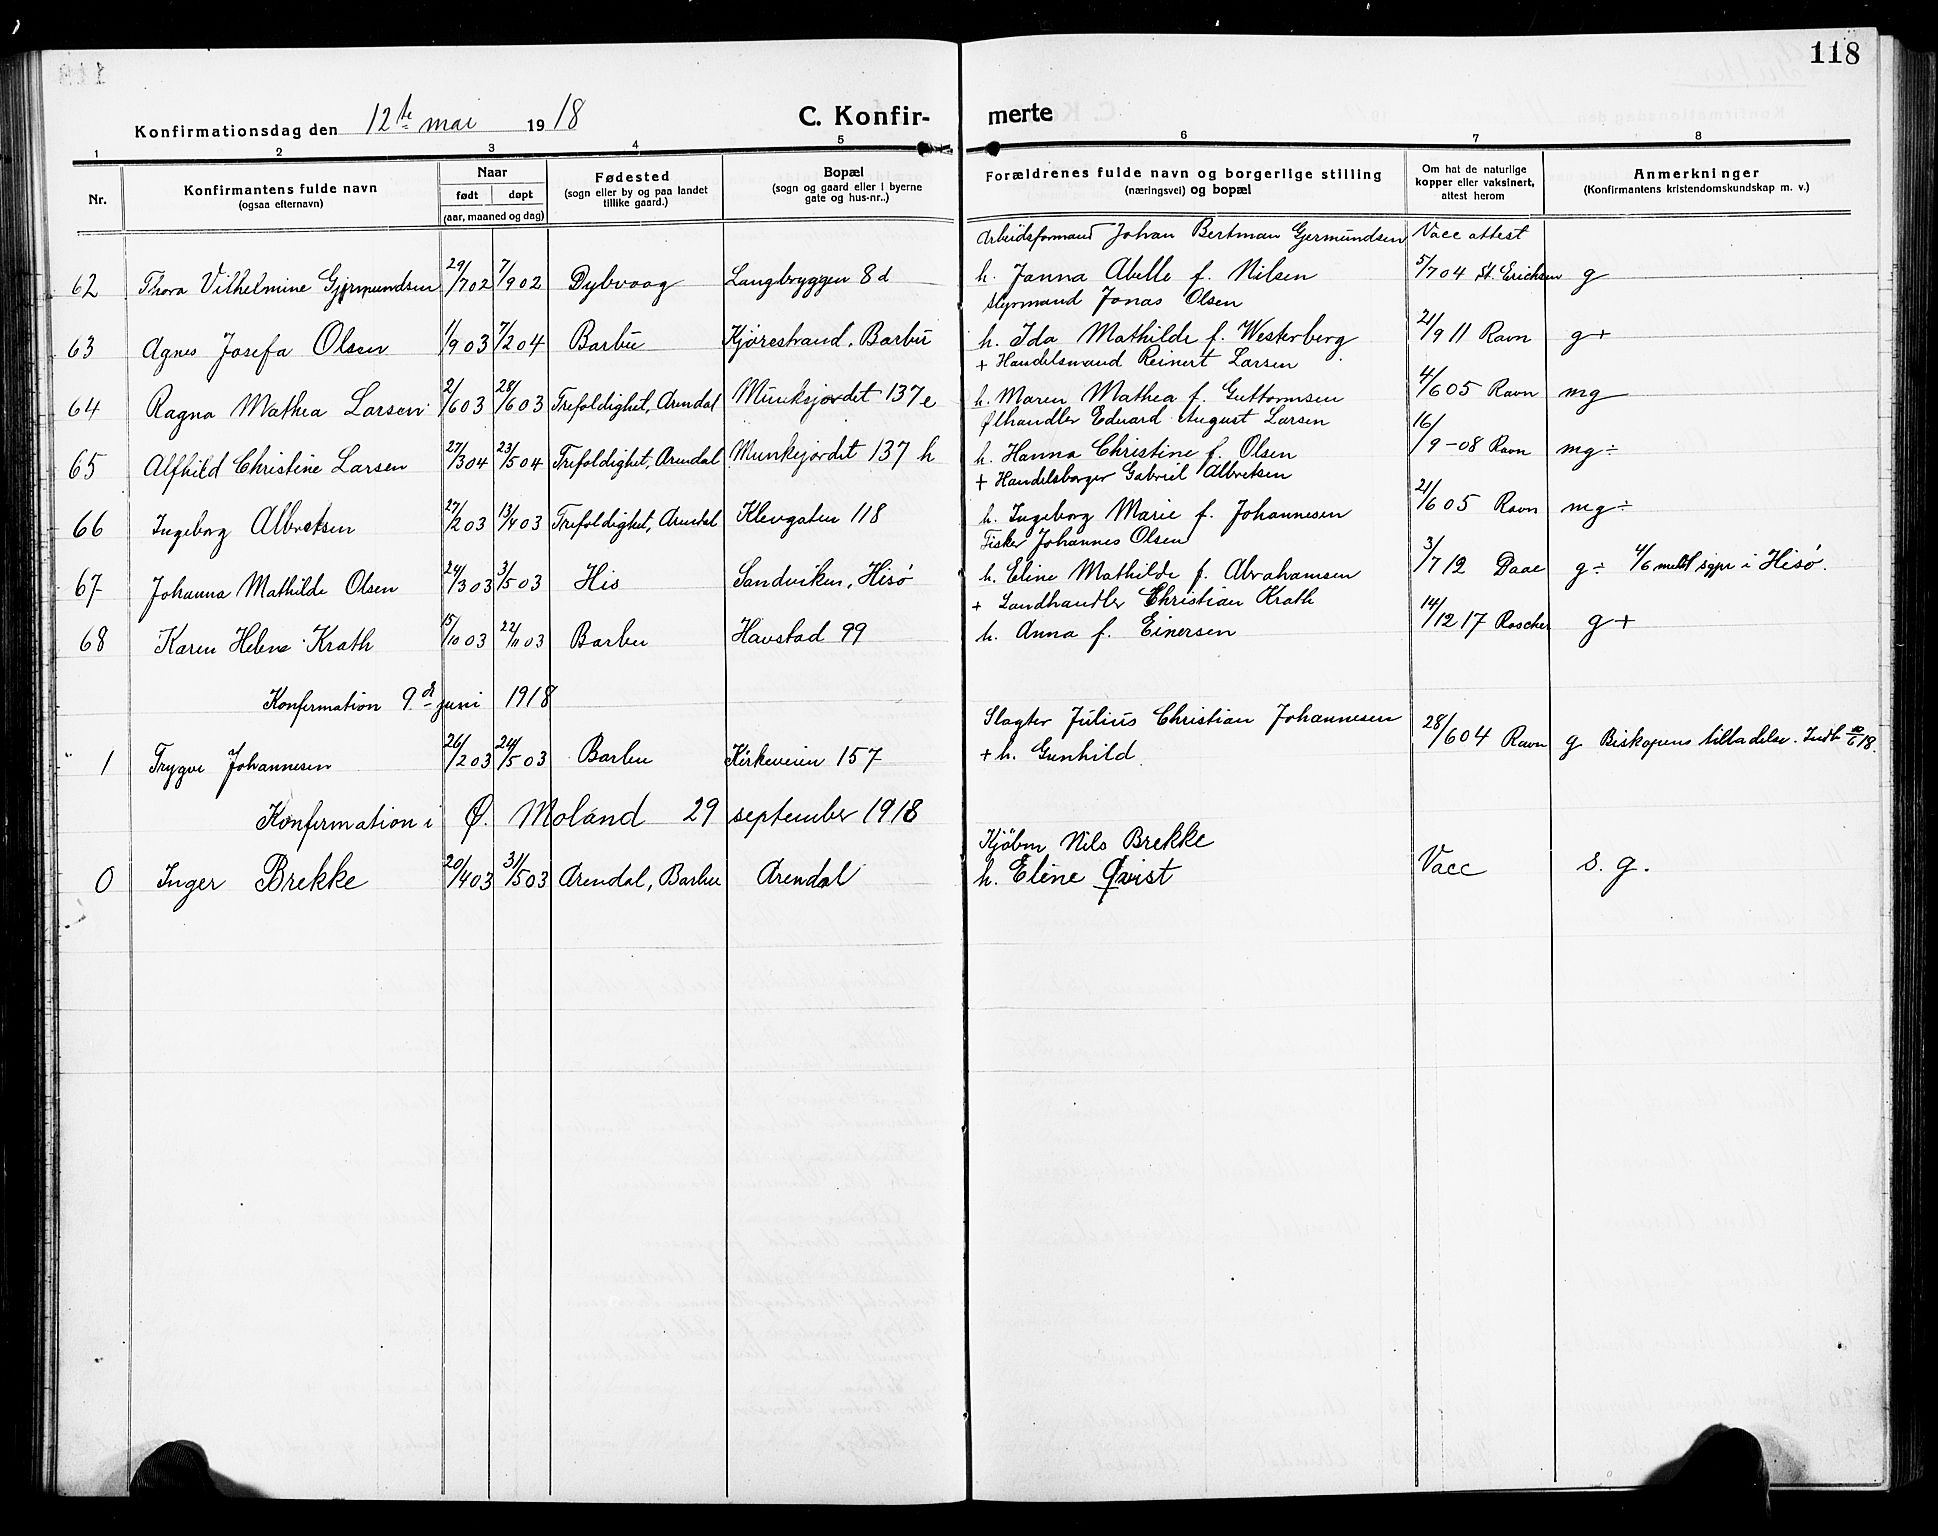 118
Konfirmationsdag den 12te mai 1918
C. Konfirmerte
1 2 3 4 5 6 7 8
Nr. Konfirmantens fulde navn (ogsaa efternavn) Naar født døpt (aar, maaned og dag) Fødested (sogn eller by og paa landet tillike gaard.) Bopæl (sogn og gaard eller i byerne gate og hus-nr..) Forældrenes fulde navn og borgerlige stilling (næringsvei) og bopæl Om hat de naturlige kopper eller vaksinert, attest herom Anmerkninger (Konfirmantens kristendomskundskap m. v.)
Arbeidsformand Johan Bertman Gjermundsen Vacc attest
62 Thora Vilhelmine Gjermundsen 29/702 7/902 Dybvaag Langbryggen 8d h. Janna Abelle f. Nilsen 5/704 St. Ericksen g
Styrmand Jonas Olsen
63 Agnes Josefa Olsen 1/903 7/204 Barbu Kjørestrand, Barbu h. Ida Mathilde f. Westerberg 21/911 Ravn g+
+ Handelsmand Reinert Larsen
64 Ragna Mathea Larsen 2/603 28/603 Trefoldighet, Arendal Munkejordet 137e h. Maren Mathea f. Guttormsen 4/605 Ravn mg
Ølhandler Eduard August Larsen
65 Alfhild Christine Larsen 27/304 23/504 Trefoldighet, Arendal Munkejordet 137 h h. Hanna Christine f. Olsen 16/9-08 Ravn mg÷
+ Handelsborger Gabriel Albretsen
66 Ingeborg Albretsen 27/203 13/403 Trefoldighet, Arendal Klevgaten 118 h. Ingeborg Marie f. Johannesen 21/605 Ravn mg÷
Fisker Johannes Olsen
67 Johanna Mathilde Olsen 24/303 3/503 His Sandviken, Hisø h. Eline Mathilde f. Abrahamsen 3/712 Daae g÷ 4/6 meldt sgpr i Hisø.
+ Landhandler Christian Krath
68 Karen Helene Krath 15/1003 22/1103 Barbu Havstad 99 h. Anna f. Einersen 14/1217 Roscher g+
Konfirmation 9de juni 1918
Slagter Julius Christian Johannesen
1 Trygve Johannesen 26/203 24/503 Barbu Kirkeveien 157 + h. Gunhild 28/604 Ravn g Biskopens tilladelse. Indb
Konfirmation i Ø. Moland 29 september 1918
Kjøbm Nils Brekke
0 Inger Brekke 20/403 31/503 Arendal, Barbu Arendal h. Eline Qvist Vacc s. g.